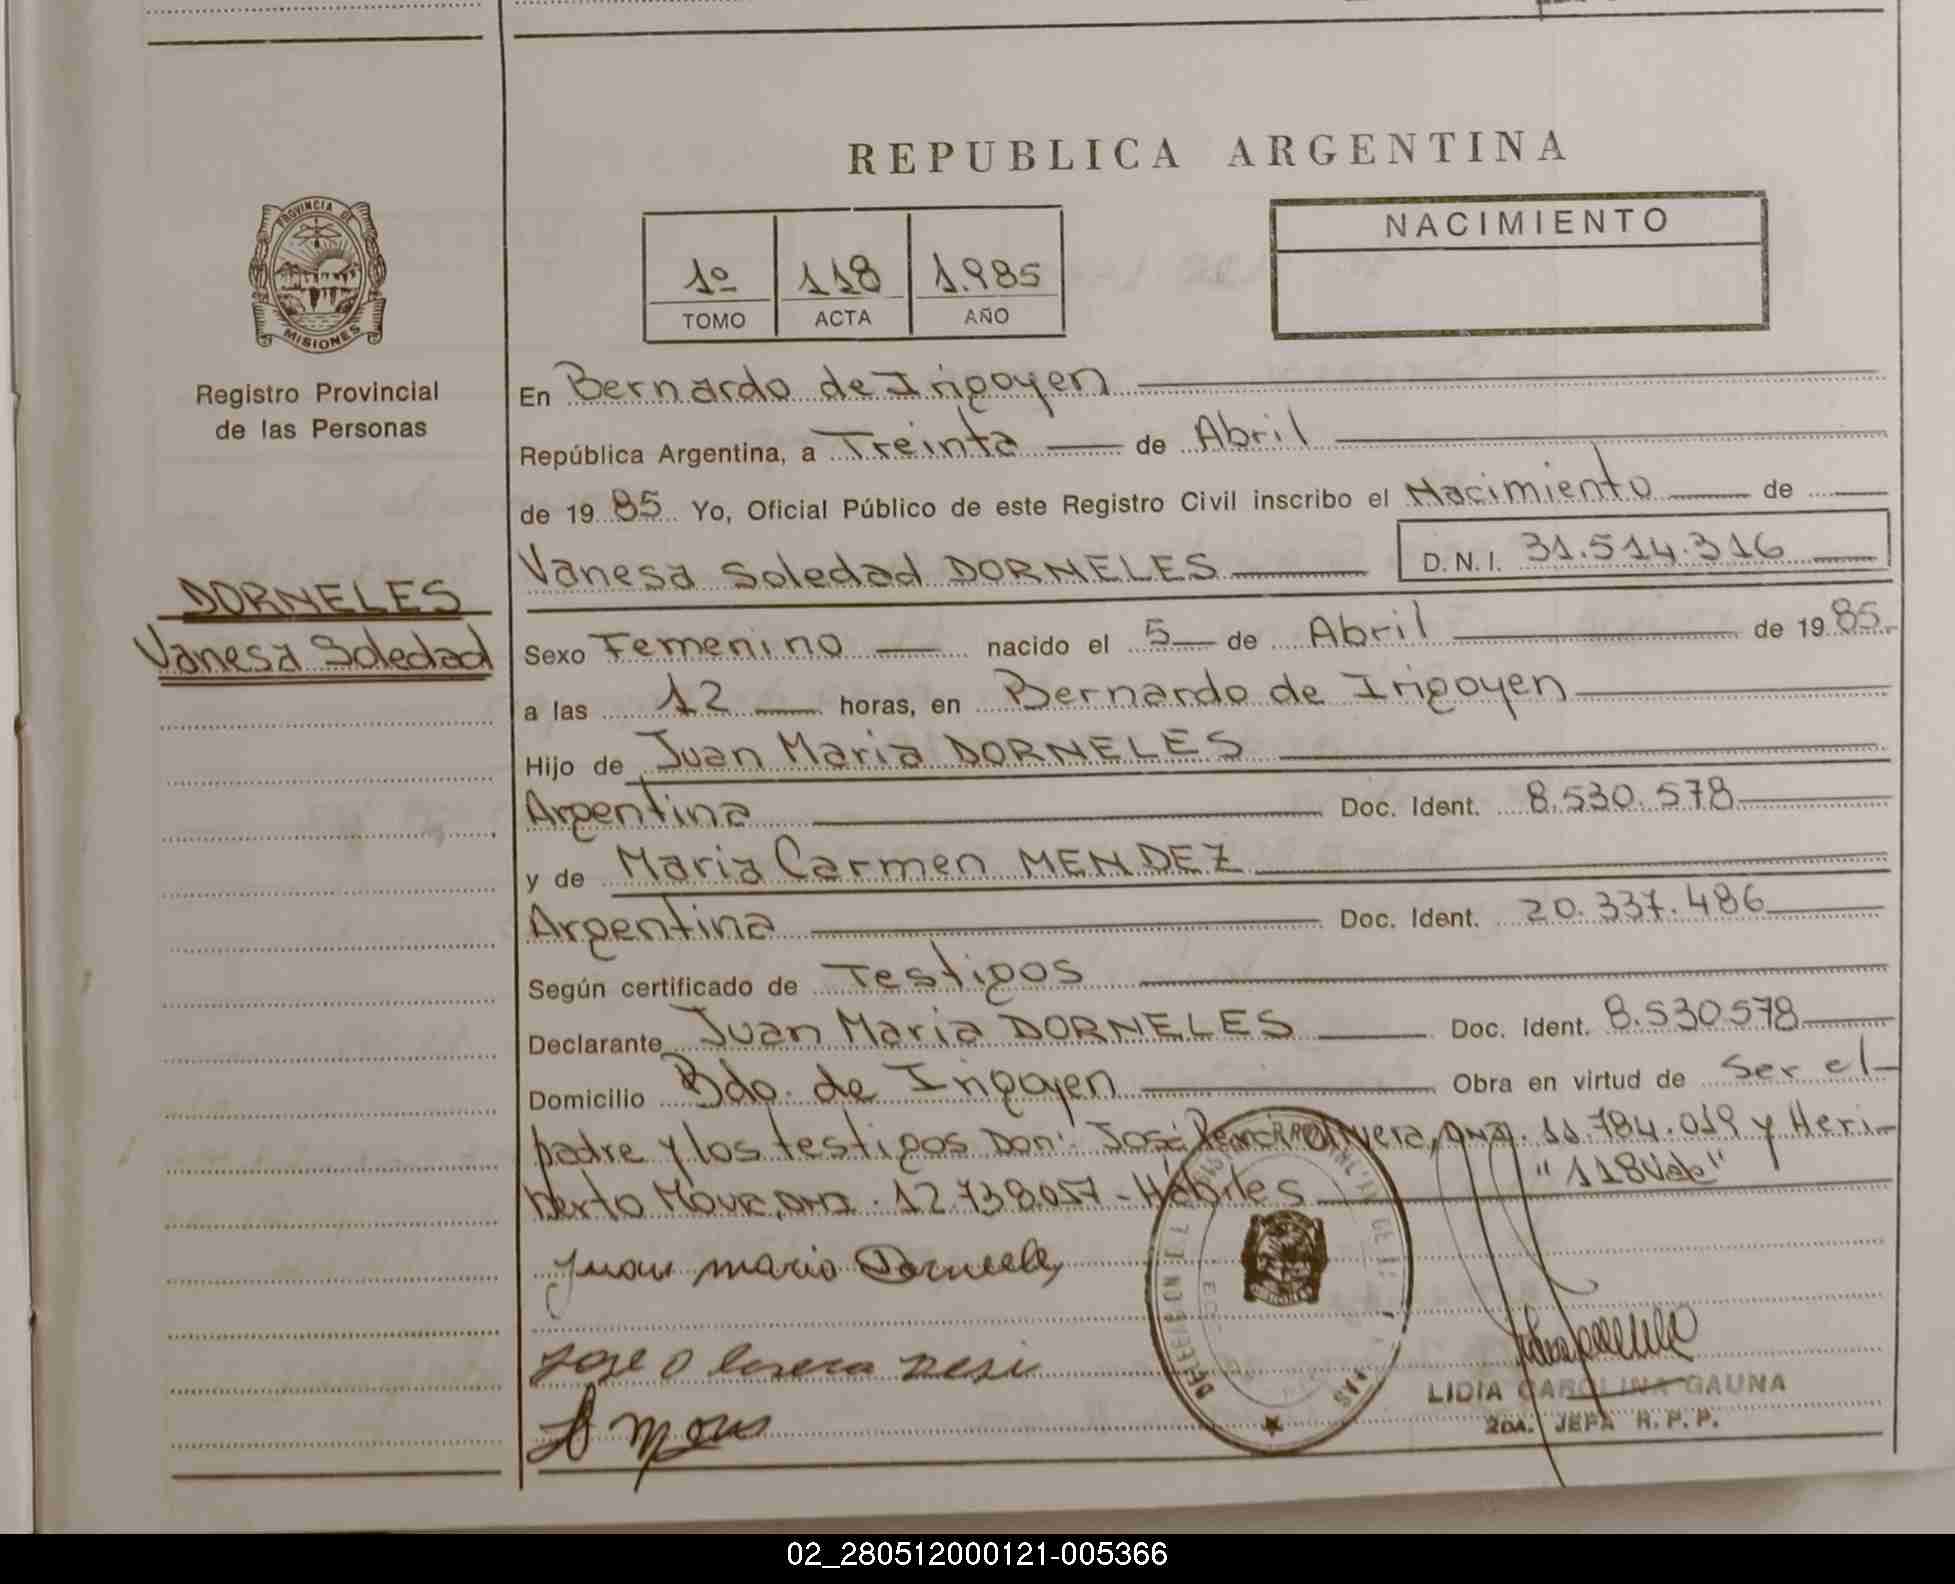 REPUBLICA ARGENTINA
PROVINCIA DE
MISIONES
1º 118 1.985
TOMO ACTA AÑO
NACIMIENTO
Registro Provincial
de las Personas
DORNELES
Vanesa Soledad
En Bernardo de Irigoyen
República Argentina, a Treinta de Abril
de 1985 Yo, Oficial Público de este Registro Civil inscribo el Nacimiento de
Vanesa Soledad DORNELES D.N.I. 31.514.316
Sexo Femenino nacido el 5 de Abril de 1985
a las 12 horas, en Bernardo de Irigoyen
Hijo de Juan Maria DORNELES
Argentina Doc. Ident. 8.530.578
y de Maria Carmen MENDEZ
Argentina Doc. Ident. 20.337.486
Según certificado de Testigos
Declarante Juan Maria DORNELES Doc. Ident. 8.530578
Domicilio Bdo. de Irigoyen Obra en virtud de Ser el
padre y los testigos Don: José Olivera, DNI. 11.784.019 y Heri-
berto DNI. 12.738.057 - Hábiles "118Vde"
Juan maria Dorneles
Jose
LIDIA CAROLINA GAUNA
2DA. JEFA R.P.P.
02_280512000121-005366